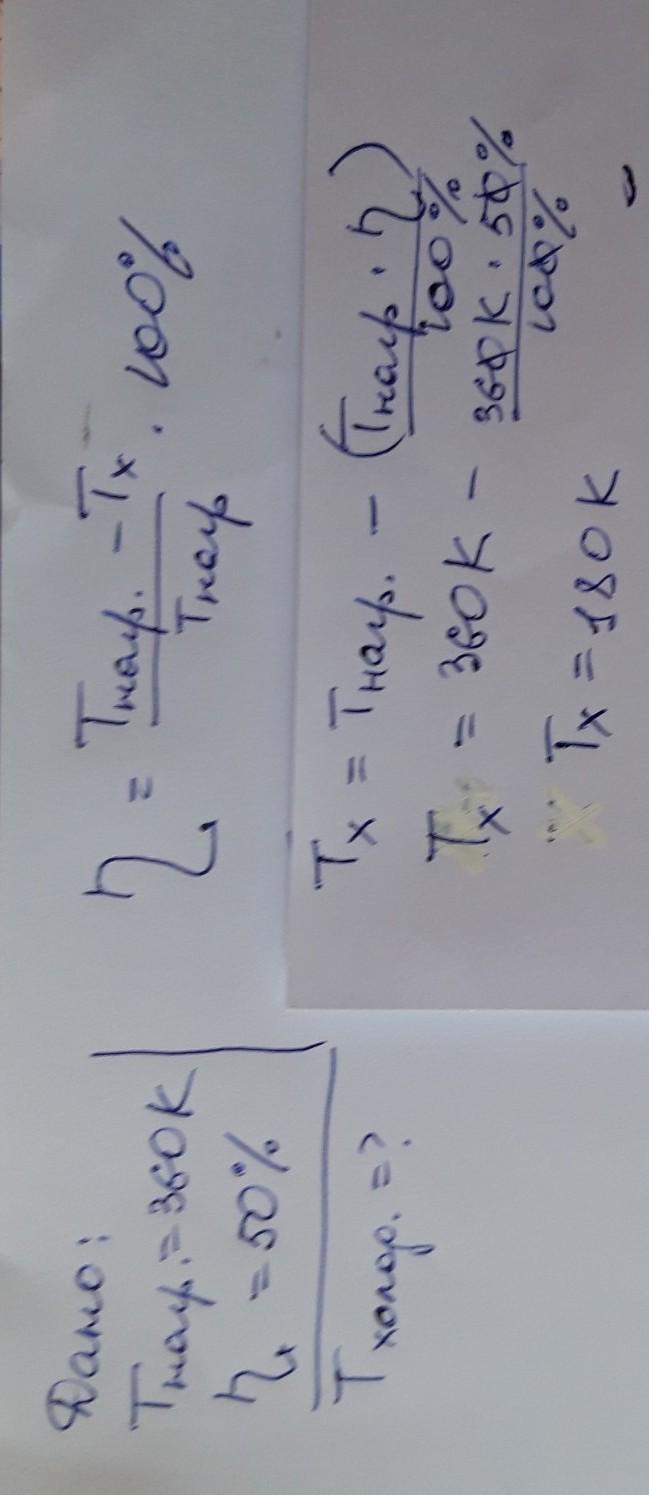 Дано:
Tнагр. = 360K
η = 50%
Tхолод. = ?
η = Tнагр. - Tx / Tнагр · 100%
Tx = Tнагр. - (Tнагр · η / 100%)
Tx = 360K - 360K · 50% / 100%
Tx = 180K